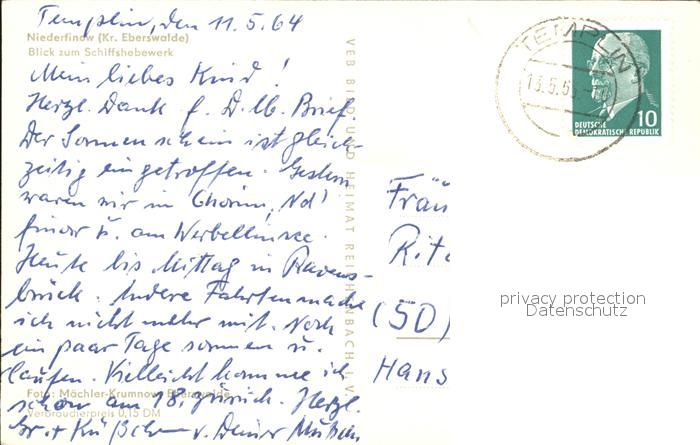 Templin, den 11.5.64
Niederfinow (Kr. Eberswalde)
Blick zum Schiffshebewerk
Mein liebes Kind!
Herzl. Dank f. D. lb. Brief.
Der Sonnenschein ist gleich-
zeitig eingetroffen. Gestern
waren wir in Chorin, Nd'
finow u. am Werbellinsee.
Heute bis Mittag in Ravens-
brück. Andere Fahrten mache
ich nicht mehr mit. Noch
ein paar Tage sonnen u.
laufen. Vielleicht komme ich
Foto: Mächler-Krumnow, Eberswalde
schon am 18. zurück. Herzl.
Verbraucherpreis 0,15 DM
Gr. + Küßchen v. Deiner
VEB BILD UND HEIMAT REICHENBACH I. V.
TEMPLIN 1
13.5.
10
DEUTSCHE
DEMOKRATISCHE REPUBLIK
Fräu
Rita
(50)
Hans
privacy protection
Datenschutz